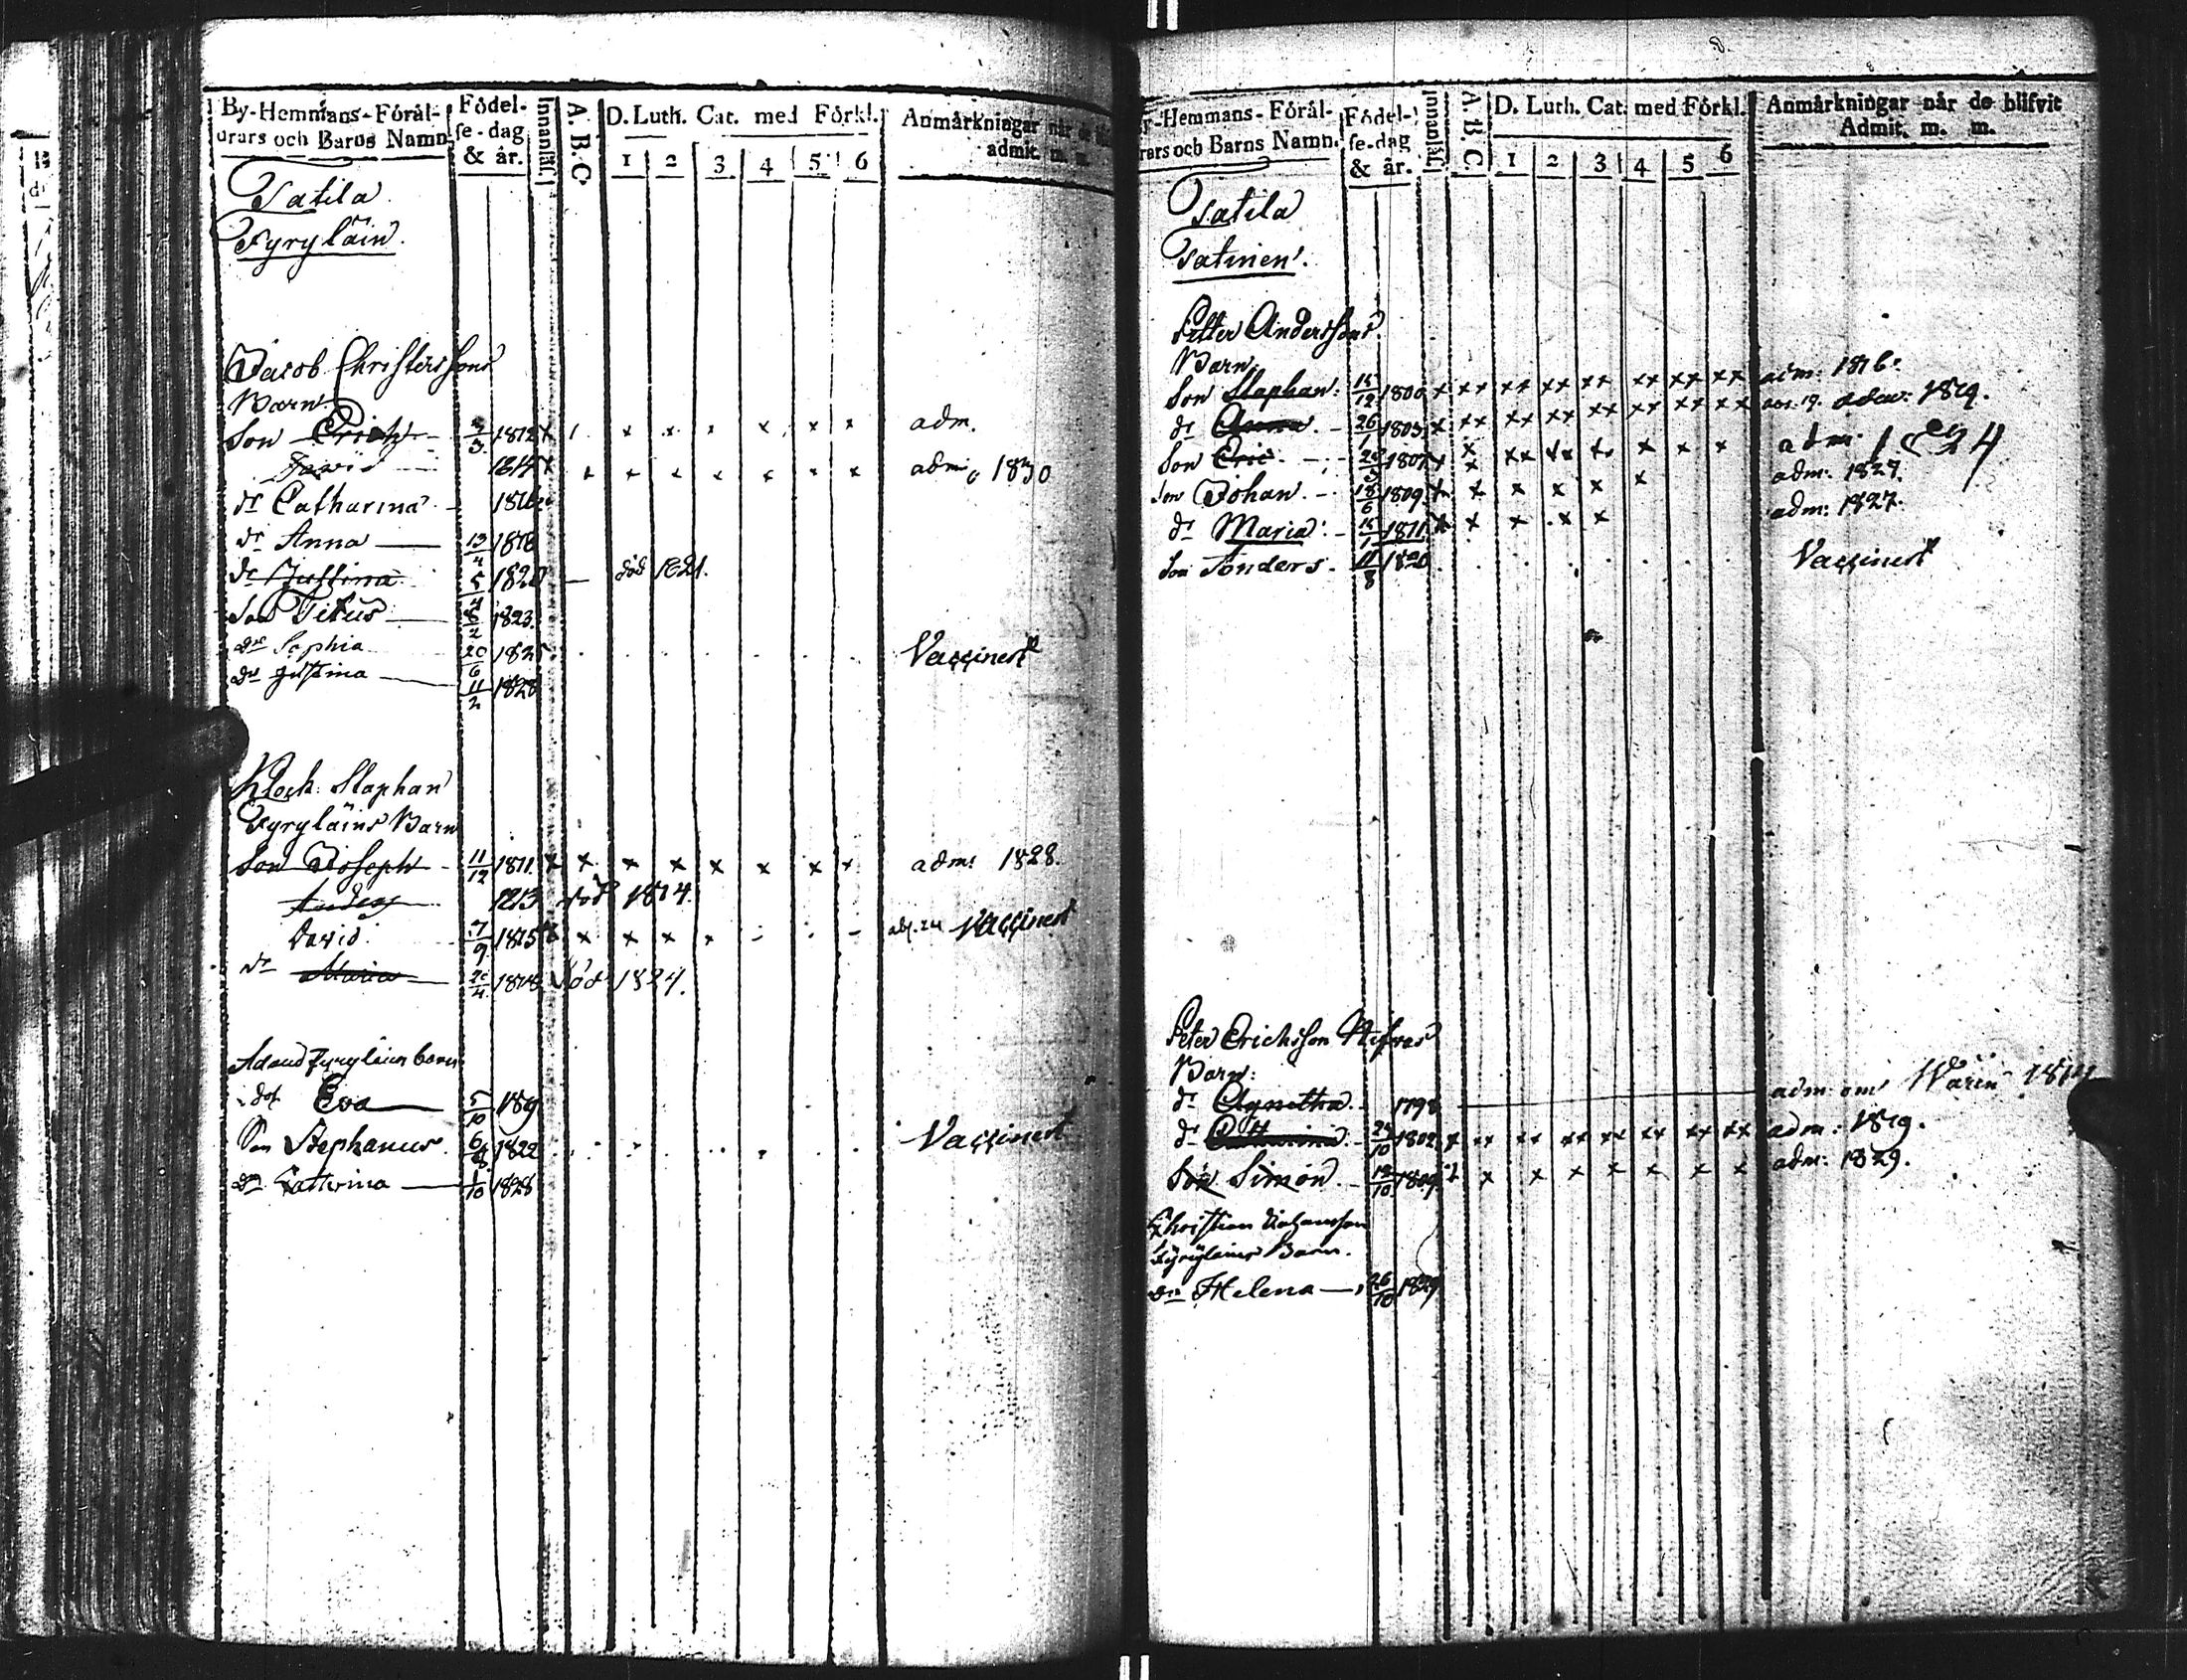 By-Hemmans-Föräl-
drars och Barns Namn.
Födel-
se-dag
& år.
Innanläs.
A. B. C
D. Luth. Cat. med Förkl.
1 2 3 4 5 6
Anmärkningar när de
admit. m. m.
Tatila
Fyryläin.
Jacob Christerssons
Barn.
Son Erich 3 1812 x / x x x x x x adm.
David 1814 x x x x x x x x adm. 1830
dr Catharina 1816
dr Anna 13/4 1818
dr Justina 5/4 1820 död 1821.
Son Titus 8/2 1823.
dr Sophia 20/6 1825 Vaccinerd
dr Justina 11/2 1828
Klock. Staphan
Fyryläins Barn
Son Joseph 11/12 1811. x x x x x x x x adm: 1828.
Anders 1813 död 1814.
David 7/9 1815 x x x x Vaccinerd
dr Maria 1818 död 1824.
Adam Fyryläins barn
dot Eva 5/10 1819
Son Stephanus 6/8 1822 Vaccinerd
dr Catterina 1/10 1828
By-Hemmans-Föräl-
drars och Barns Namn.
Födel-
se-dag
& år.
Innanläs.
A. B. C.
D. Luth. Cat. med Förkl.
1 2 3 4 5 6
Anmärkningar när de blifvit
Admit. m. m.
Tatila
Tatinen.
Petter Anderssons
Barn.
Son Staphan. 15/12 1800 x xx xx xx xx xx xx xx adm: 1816.
dr Anna 26/1 1803 x xx xx xx xx xx xx xx adm: 1819.
Son Eric 1807 x x xx xx x x x x adm. 1824
Son Johan. 18/6 1809 x x x x x x adm: 1827.
dr Maria. 15/1 1811. x x x x x adm: 1827.
Son Tonders. 11/8 1820 Vaccinerd
Peter Erichsson
Barn:
dr Agnetha 1798 adm. om 1814
dr Catharina. 24/10 1802 x xx xx xx xx xx xx xx adm: 1819.
Son Simon. 12/10 1809 x x x x x x x x adm: 1829.
Christian Johansson
Fyryläins Barn.
dr Helena 26/10 1829